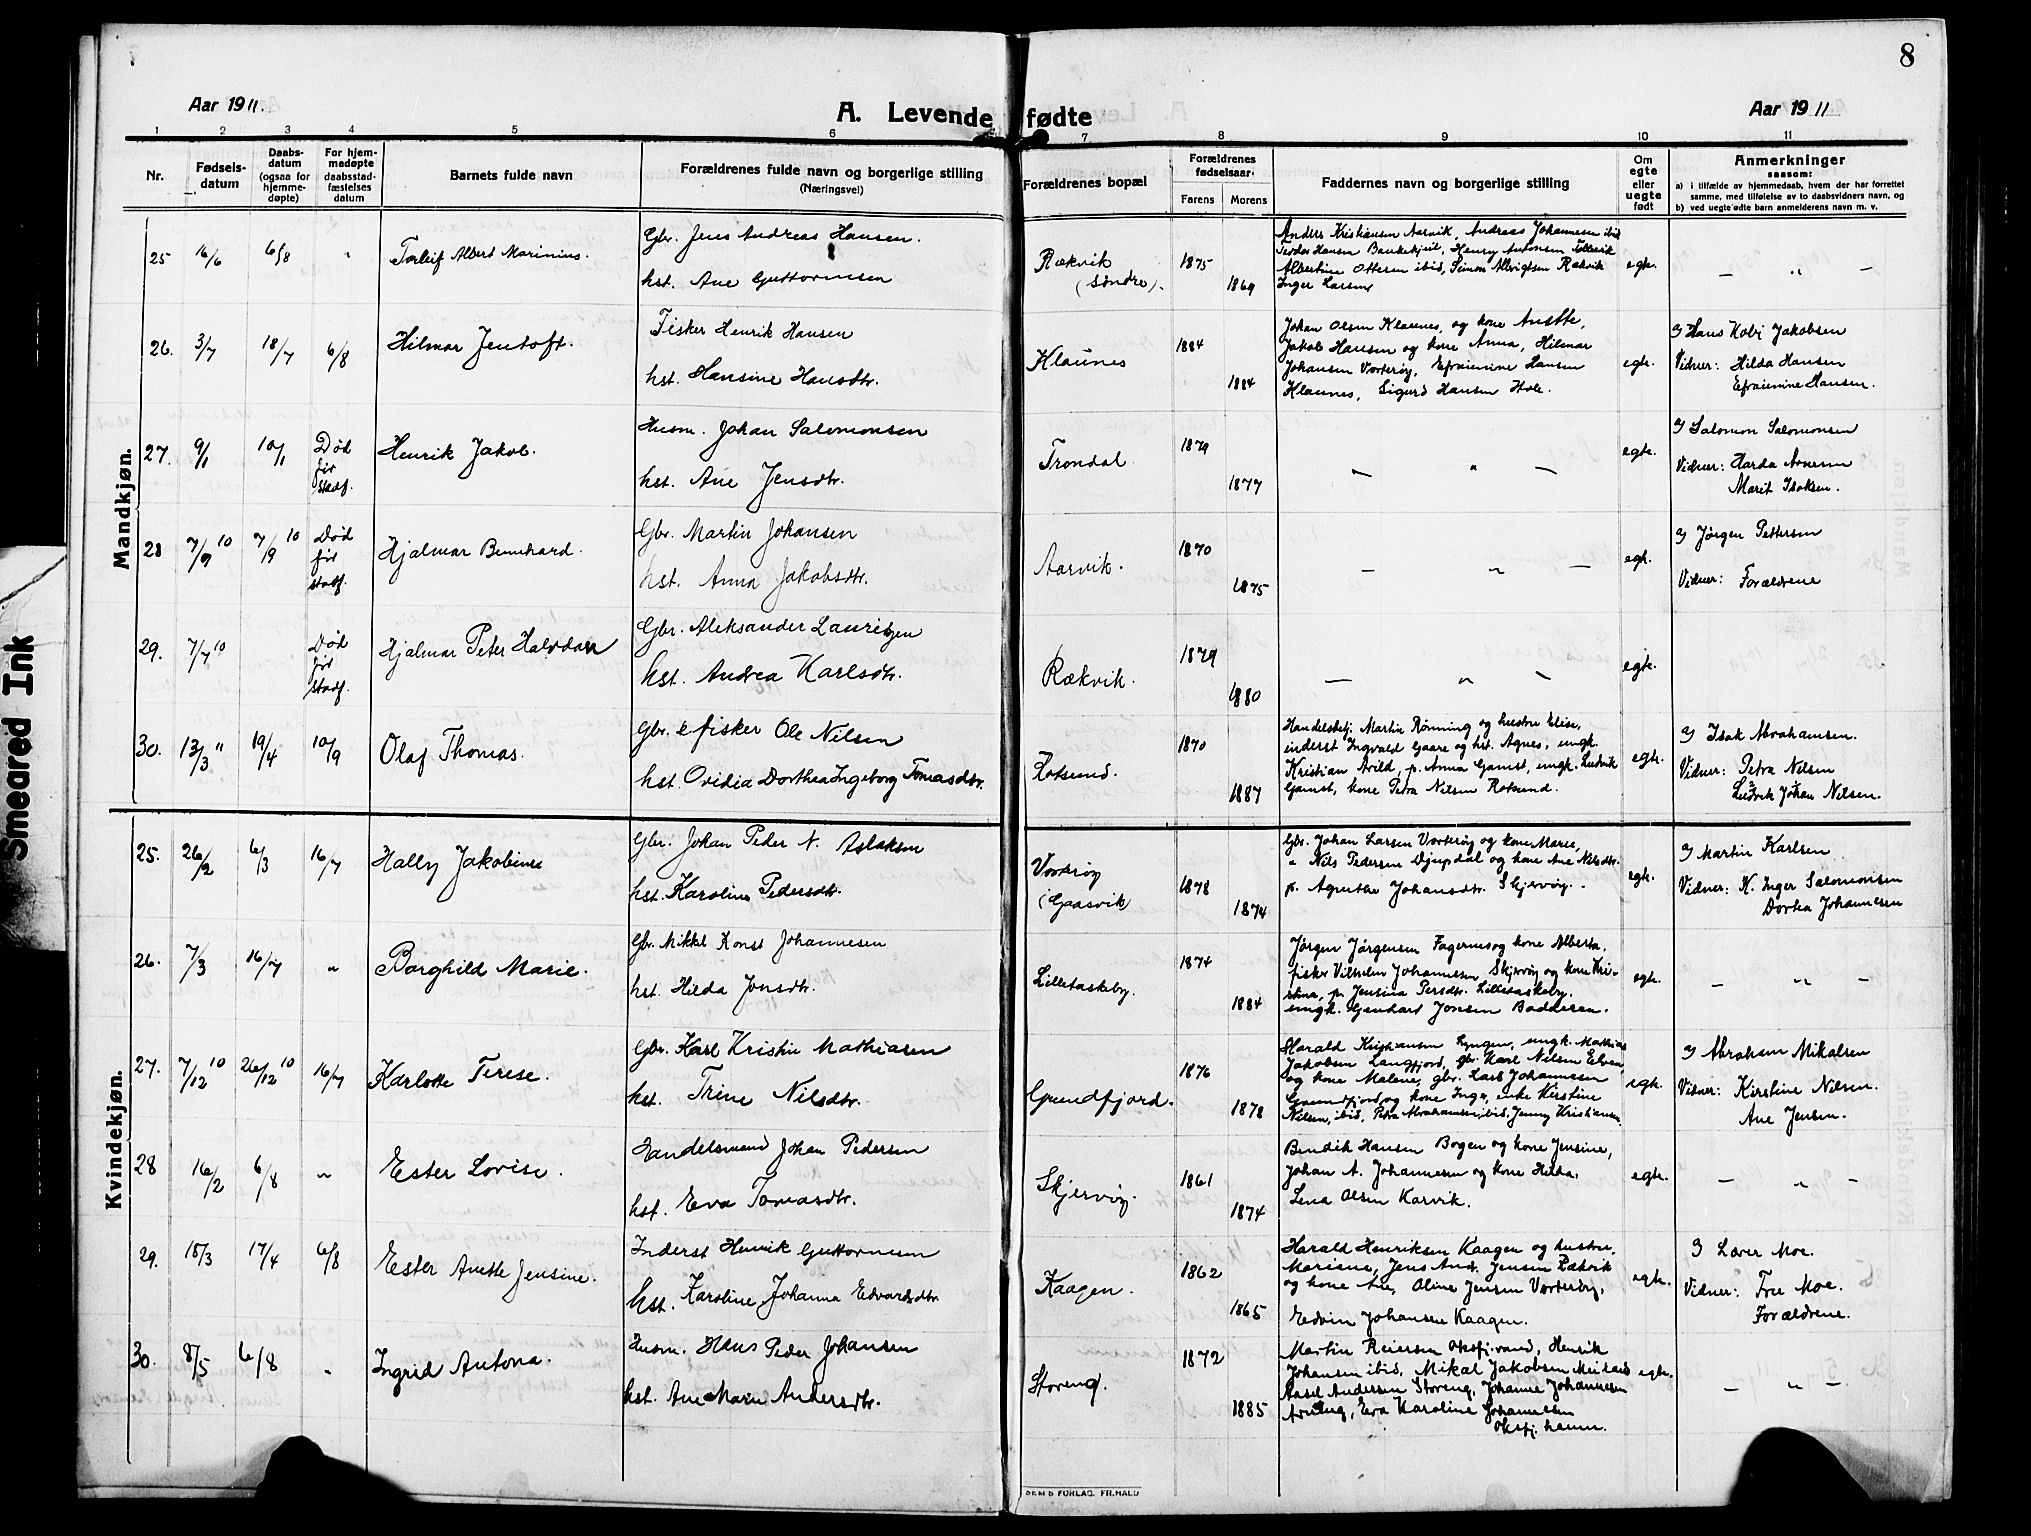 8
Aar 1911.
A. Levende fødte
Aar 1911
1 2 3 4 5 6 7 8 9 10 11
Nr.
Fødsels-
datum
Daabs-
datum
(ogsaa for
hjemme-
døpte)
For hjem-
medøpte
daabsstad-
fæstelses
datum
Barnets fulde navn
Forældrenes fulde navn og borgerlige stilling
(Næringsvei)
Forældrenes bopæl
Forældrenes
fødselsaar
Farens Morens
Faddernes navn og borgerlige stilling
Om
egte
eller
uegte
født
Anmerkninger
saasom:
a) i tilfælde av hjemmedaab, hvem der har forrettet
samme, med tilføielse av to daabsvidners navn, og
b) ved uegte fødte barn anmelderens navn m. v.
Mandkjøn.
25 16/6 6/8 " Torleif Albert Marinius.
Gbr. Jens Andreas Hansen.
hst. Ane Guttormsen
Rækvik
(søndre).
1875
1869
Anders Kristiansen Aarvik, Andreas Johannesen ibid
Teodor Hansen Henry Antonsen
Albertine Ottesen ibid, Simon Albrigtsen Rækvik
Inger Larsen
egte.
— " —
26. 3/7 18/7 6/8 Hilmar Jentoft.
Fisker Henrik Hansen
hst. Hansine Hansdtr.
Klaunes
1884
1884
Johan Olsen Klaunes, og kone Anette,
Jakob Hansen og kone Anna, Hilmar
Johansen Vorterøy, Efraimine Hansen
Klaunes, Sigurd Hansen Hole.
egte.
Hans Kobi Jakobsen
Vidner: Hilda Hansen
Efraimine Hansen.
27. 9/1 10/1 Død
før
stadf.
Henrik Jakob.
Husm. Johan Salomonsen
hst. Ane Jensdtr.
Trondal
1879
1877
— " —
egte.
Salomon Salomonsen
Vidner: Harda Arnesen
Marit Isaksen.
28 7/9 10 7/9 10 Død
før
stadf.
Hjalmar Bernhard.
Gbr. Martin Johansen
hst. Anna Jakobsdtr.
Aarvik.
1870
1875
— " —
egte.
Jørgen Pettersen
Vidner: Forældrene
29. 7/7 10 Død
før
stadf.
Hjalmar Peter Halvdan
Gbr. Aleksander Lauritzen
hst. Andrea Karlsdtr.
Rækvik.
1879
1880
— " —
egte.
30. 13/3 " 19/4 10/9 Olaf Thomas.
Gbr. & fisker Ole Nilsen
hst. Ovidia Dorthea Ingeborg Tomasdtr.
Rotsund.
1870
1887
Handelsbetj. Martin Rønning og hustru Elise,
inderst Ingvald Gaare og hst. Agnes, ungk.
Kristian Arild, p. Anna Gamst, ungk. Ludvik
Gamst, kone Petra Nilsen Rotsund.
egte.
Isak Abrahamsen.
Vidner: Petra Nilsen
Ludvik Johan Nilsen.
Kvindekjøn.
25. 26/2 6/3 16/7 Hally Jakobine
Gbr. Johan Peder N. Aslaksen
hst. Karoline Pedersdtr.
Vorterøy
(Gaasvik)
1878
1874
Gbr. Johan Larsen Vorterøy og kone Marie,
" Nils Pedersen Djupdal og kone Ane Nilsdtr.
p. Agnethe Johansdtr. Skjervøy.
egte.
Martin Karlsen
Vidner: K. Inger Salomonsen
Dortea Johannesen
26. 7/3 16/7 " Borghild Marie.
Gbr. Mikkel Konst Johannesen
hst. Hilda Jonsdtr.
Lilletaskeby.
1874
1884
Jørgen Jørgensen Fagernes og kone Alberta,
fisker Vilhelm Johannesen Skjervøy og kone Kri-
stine, p. Jensina Persdtr. Lilletaskeby.
ungk. Gerhart Jonsen Badderen.
egte.
— " —
27. 7/12 10 26/12 10 16/7 Karlotte Terese.
Gbr. Karl Kristin Mathiasen
hst. Trine Nilsdtr.
Grundfjord.
1876
1878
Harald Kristiansen Lyngen, ungk. Mathias
Jakobsen Langfjord, gbr. Karl Nilsen Elven
og kone Malene, gbr. Lars Johannesen
Grundfjord og kone Inga, enke Kirstine
Nilsen, ibid, Petra Abrahamsen ibid, Jenny Kristiansen
egte.
Abraham Mikalsen
Vidner: Kirstine Nilsen.
Ane Jensen.
28 16/2 6/8 " Ester Lovise.
Handelsmand Johan Pedersen
hst. Eva Tomasdtr.
Skjervøy.
1861
1874
Bendik Hansen Bogen og kone Jensine,
Johan A. Johannesen og kone Hilda.
Lena Olsen Karvik.
egte.
— " —
29. 18/3 17/4 6/8 Ester Anette Jensine.
Inderst Henrik Guttormsen
hst. Karoline Johanna Edvardsdtr
Kaagen.
1862
1865
Harald Henriksen Kaagen og hustru,
Marisne, Jens And. Jensen Rækvik
og kone Ane, Oline Jensen Vorterøy,
Edvin Johansen Kaagen.
egte.
Lærer Moe.
Vidner: Fru Moe.
Forældrene.
30. 8/5 6/8 " Ingrid Antona.
Husm. Hans Peder Johansen
hst. Ane Marie Andersdtr.
Storeng.
1872
1885
Martin Reiersen Oksfj.vand, Henrik
Johansen ibid, Mikal Jakobsen
Aasel Andersen Storeng, Johanne Johannesen
Eva Karoline Johannesen
Oksfj. havn.
egte.
— " —
SEM'S FORLAG. FR.HALD
Smeared Ink